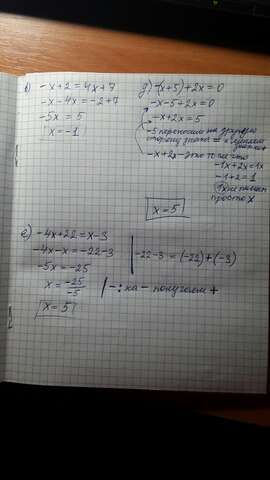 в) -x+2=4x+7
-x-4x=-2+7
-5x=5
x=-1
д) -(x+5)+2x=0
-x-5+2x=0
-x+2x=5
-5 переносим на другую
сторону знака = и меняем
на +
-x+2x - это то же что
-1x+2x=1x
-1+2=1
1x не пишем
просто x
x=5
е) -4x+22=x-3
-4x-x=-22-3
-5x=-25
x=-25/-5
x=5
-22-3=(-22)+(-3)
-:на - получаем +